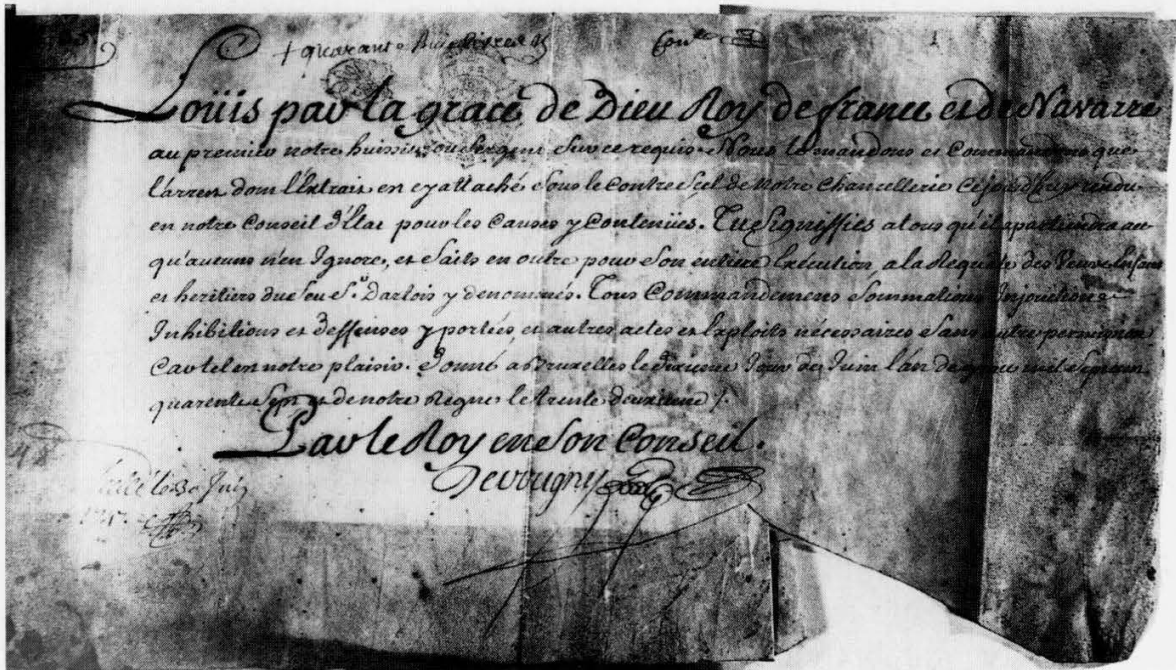 + quarante huit livres
Loüis par la grace de Dieu Roy de france et de Navarre
au premier notre huissier ou Sergent Sur ce requis. Nous te mandons et Commandons que
l'arrest dont l'Extrait en cy attaché Sous le Contre Scel de Notre Chancellerie cejourdhuy rendu
en notre Conseil d'Etat pour les Causes y Contenües. Tu Signiffies a tous qu'il apartiendra
qu'aucuns n'en Ignore, et faits en outre pour Son entiere Execution, a la Requete des Veuve Enfans
et heritiers du feu S.r Dartois y denommés. Tous Commandemens Sommations Injonctions
Inhibitions et deffenses y portées, et autres actes et Exploits nécessaires Sans autre permission
Car tel en notre plaisir. Donné a Bruxelles le dixieme Jour de Juin l'an de grace mil Sept cent
quarente Sept et de notre Regne le trente deuxieme /.
Par le Roy en Son Conseil.
Devougny
Scellé le 30 Juin